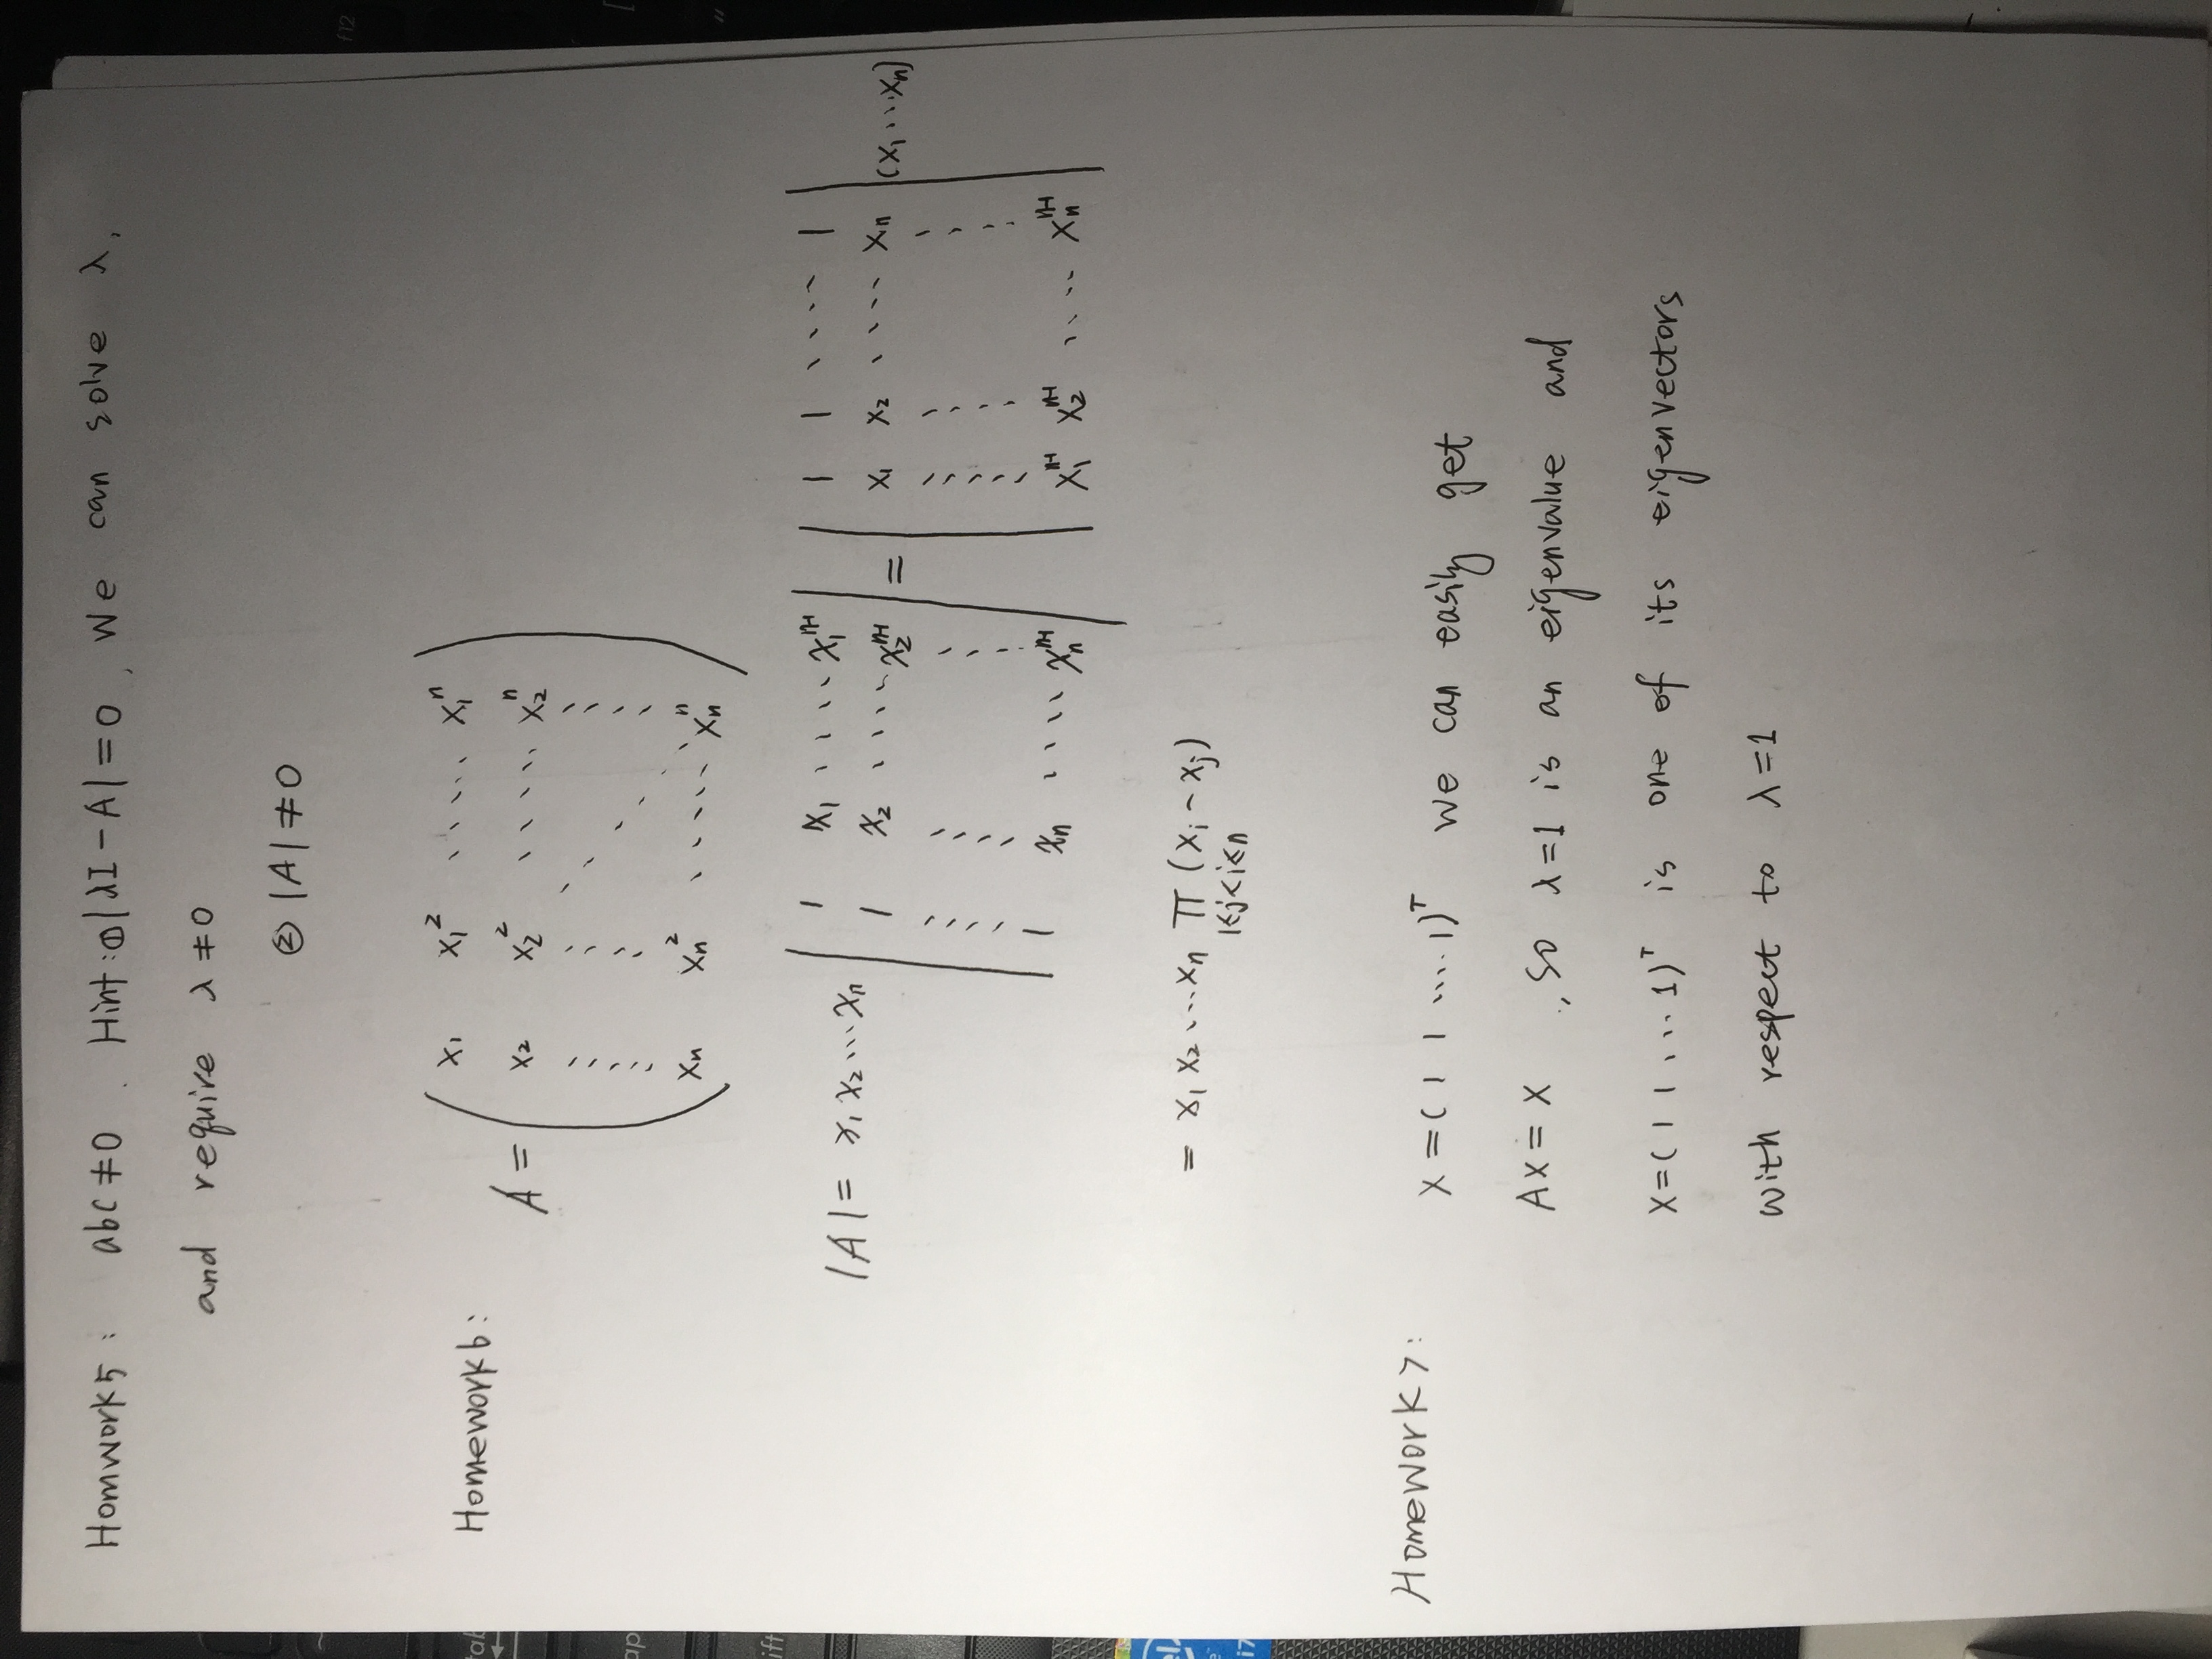 Homwork5: abc≠0. Hint:①|λI-A|=0, We can solve λ,
and require λ≠0
② |A|≠0
Homework6:
A = ( x₁ x₁² ..... x₁ⁿ
x₂ x₂² ..... x₂ⁿ
xₙ xₙ² ..... xₙⁿ )
|A| = x₁ x₂ ... xₙ | 1 x₁ .... x₁ⁿ⁻¹
1 x₂ .... x₂ⁿ⁻¹
1 xₙ .... xₙⁿ⁻¹ |
= | 1 1 .... 1
x₁ x₂ .... xₙ
x₁ⁿ⁻¹ x₂ⁿ⁻¹ .... xₙⁿ⁻¹ | (x₁ ... xₙ)
= x₁ x₂ ... xₙ Π (xᵢ - xⱼ)
1≤j<i≤n
Homework7:
X = (1 1 .... 1)ᵀ we can easily get
AX = X , so λ=1 is an eigenvalue and
X=(1 1 ... 1)ᵀ is one of its eigenvectors
with respect to λ=1
f12
i7